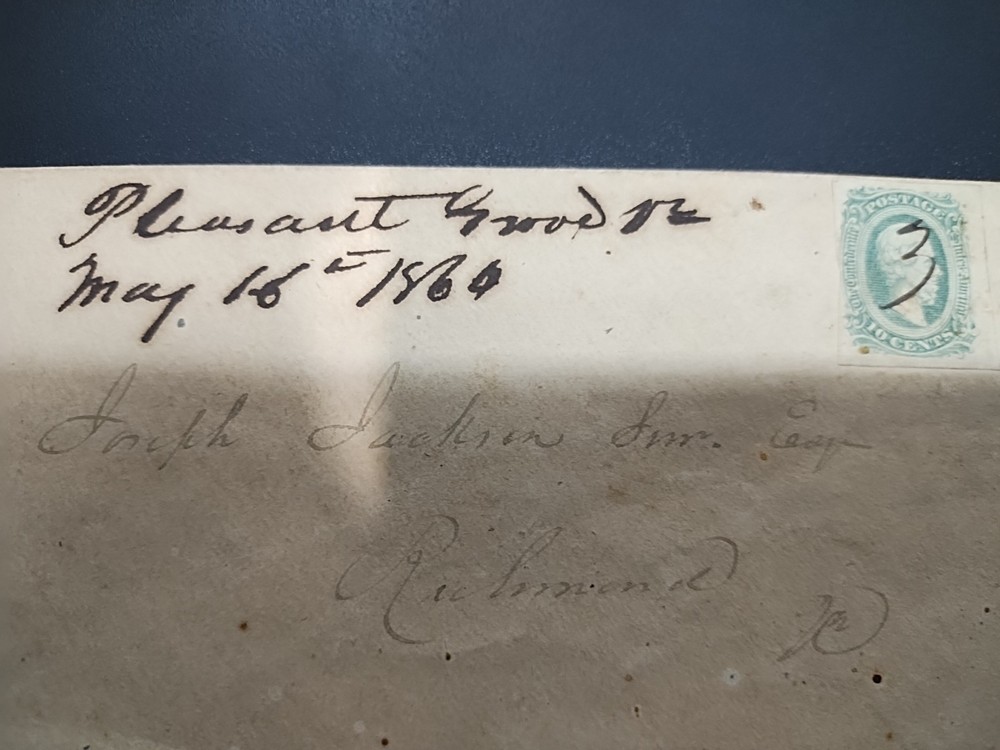 Pleasant Grove Va
May 16th 1864
POSTAGE
The Confederate States of America
3
10 CENTS
Joseph Jackson Junr. Esqr
Richmond
Va